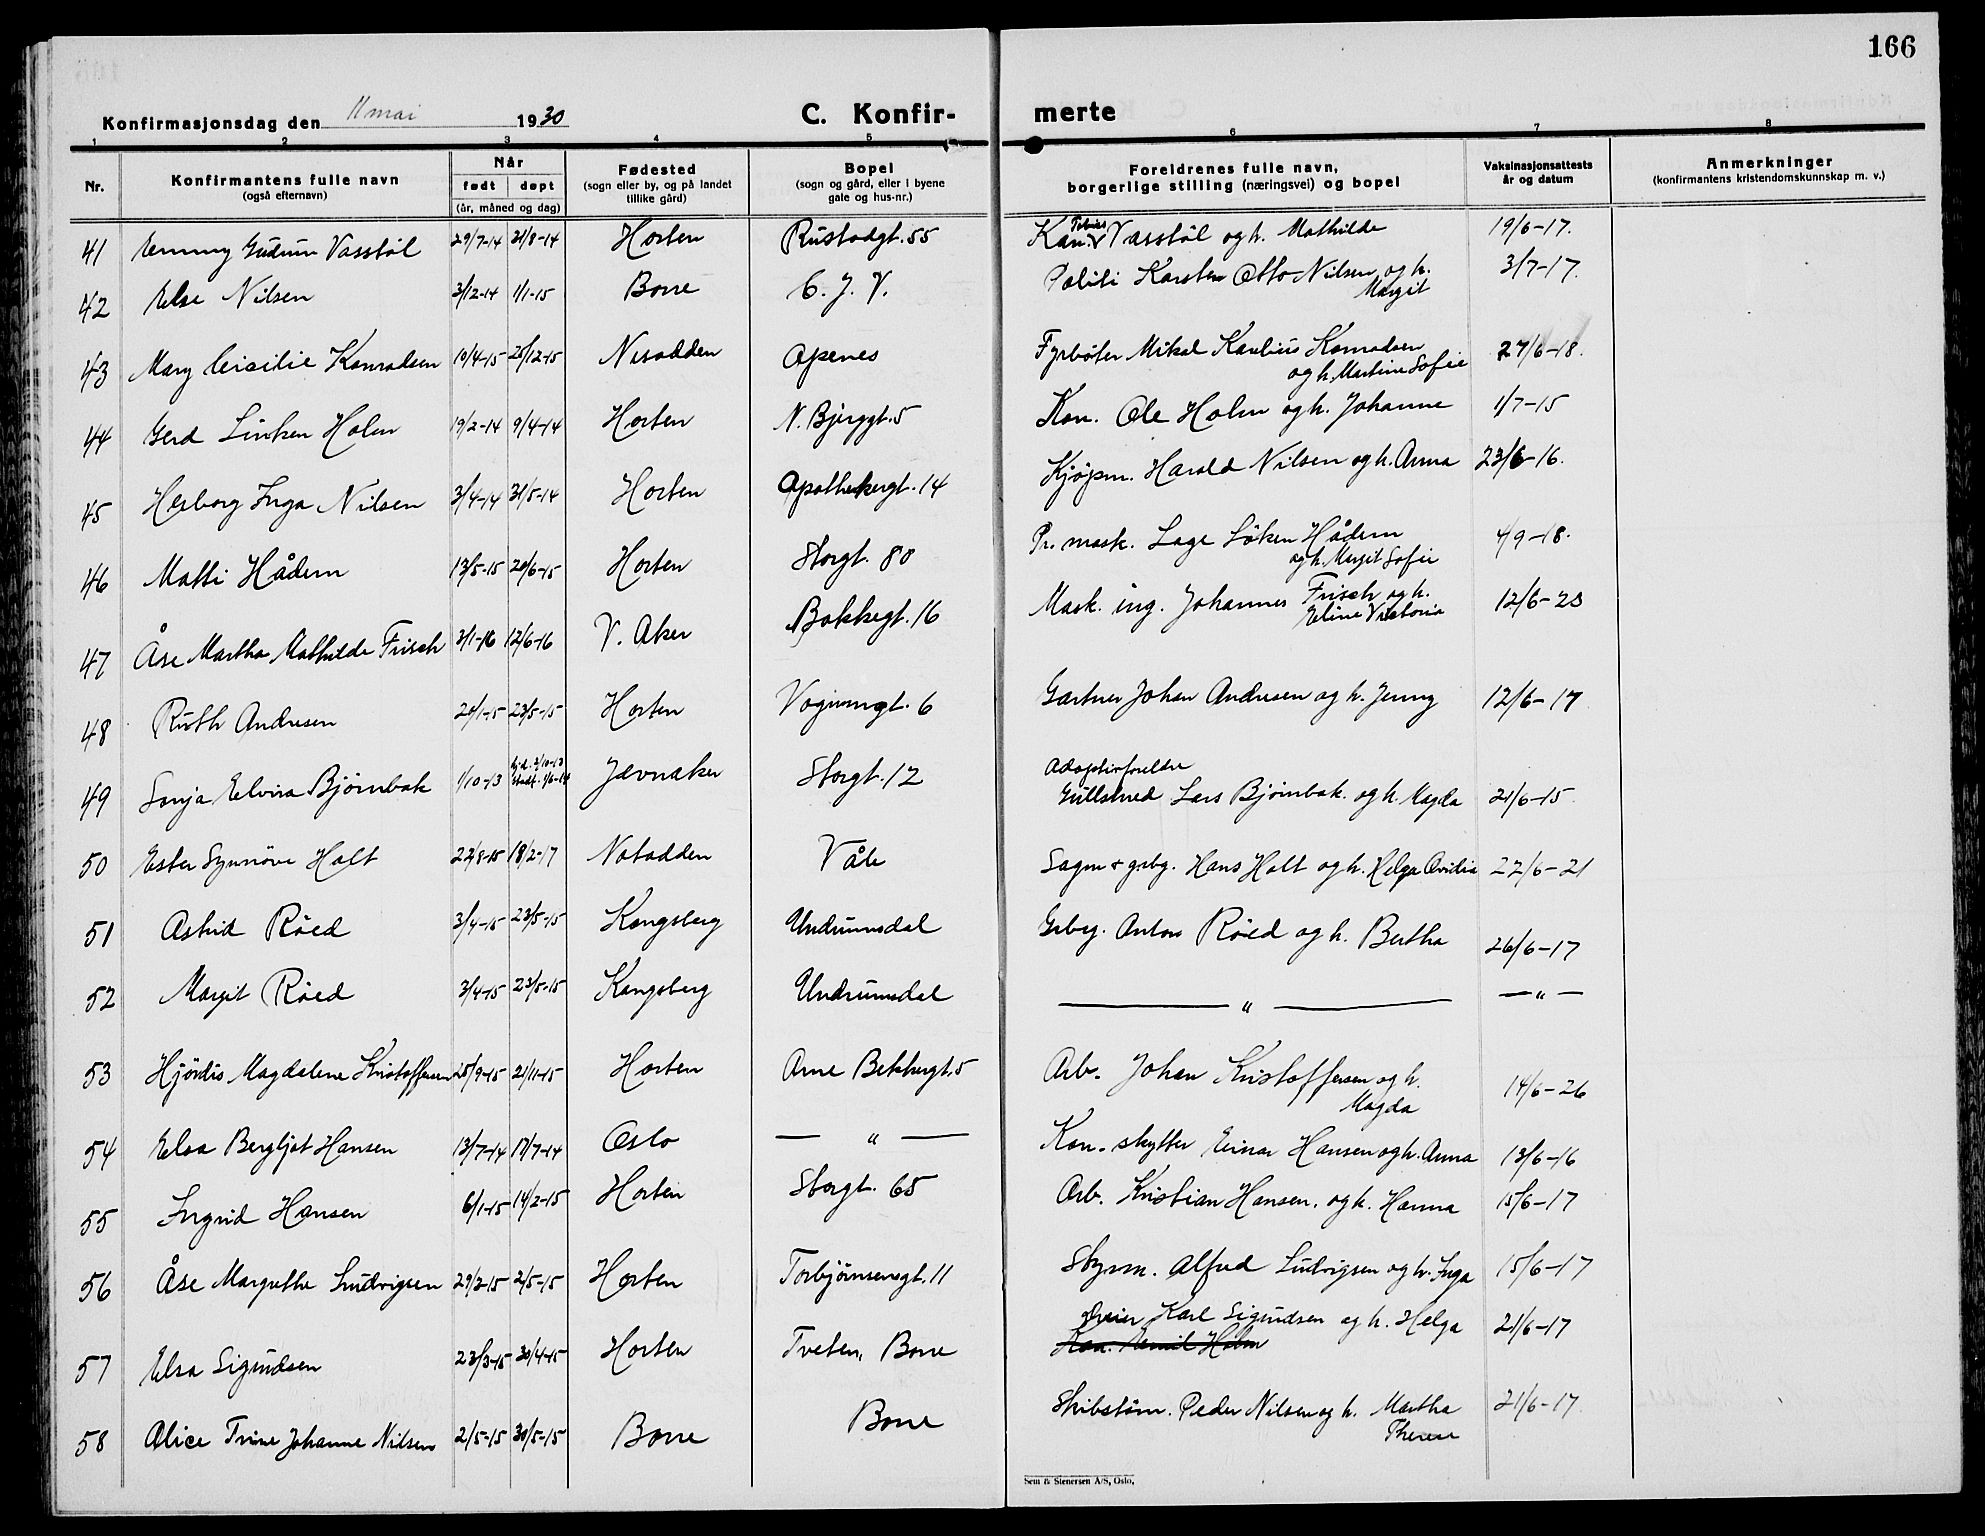 166
Konfirmasjonsdag den 11 mai 1930 C. Konfir- merte
1 2 3 4 5 6 7 8
Nr. Konfirmantens fulle navn (også efternavn) Når født døpt (år, måned og dag) Fødested (sogn eller by, og på landet tillike gård) Bopel (sogn og gård, eller i byene gate og hus-nr.) Foreldrenes fulle navn, borgerlige stilling (næringsvei) og bopel Vaksinasjonsattests år og datum Anmerkninger (konfirmantens kristendomskunnskap m. v.)
41 Emmy Gudrun Vasstöl 29/7-14 21/8-14 Horten Rustadgt. 55 Kan. Vasstöl og h. Mathilde 19/6-17.
42 Else Nilsen 3/12-14 1/1-15 Borre C. J. V. Politi Karsten Otto Nilsen og h. Margit 3/7-17.
43 Mary Cicilie Konradsen 10/4-15 25/12-15 Nesodden Apenes Fyrböter Mikal Karelius Konradsen og h. Martine Sofie 27/6-18.
44 Gerd Linken Holm 19/2-14 9/4-14 Horten N. Bjerggt. 5 Kan. Ole Holm og h. Johanne 1/7-15
45 Herborg Inga Nilsen 3/4-14 31/5-14 Horten Apothekergt. 14 Kjøpm. Harald Nilsen og h. Anna 23/6-16.
46 Matti Hådem 13/5-15 20/6-15 Horten Storgt. 80 Pr. mask. Lage Löken Hådem og h. Margit Sofie 4/9-18.
47 Åse Martha Mathilde Frisch 2/1-16 12/6-16 V. Aker Bakkegt. 16 Mask. ing. Johannes Frisch og h. Eline Victoria 12/6-23
48 Ruth Andresen 20/1-15 23/5-15 Horten Vognmgt. 6 Gartner Johan Andresen og h. Jenny 12/6-17
49 Sonja Elvira Bjørnbak 1/10-13 hj.d. 3/10-13 stadf. 1/6-14 Jevnaker Storgt. 12 Adoptivforeldre Gullsmed Lars Bjørnbak og h. Magda 21/6-15.
50 Ester Synnöve Holt 22/8-15 18/2-17 Notodden Våle Sagm. & grbg. Hans Holt og h. Helga Ovidia 22/6-21
51 Astrid Röed 3/4-15 23/5-15 Kongsberg Undrumsdal Grbg. Anton Röed og h. Bertha 26/6-17
52 Margit Röed 3/4-15 23/5-15 Kongsberg Undrumsdal — " — — " —
53 Hjördis Magdalene Kristoffersen 25/9-15 21/11-15 Horten Arne Bekkergt. 5 Arb. Johan Kristoffersen og h. Magda 14/6-26
54 Elsa Bergljot Hansen 13/7-14 17/7-14 Oslo — " — Kan. skytter Einar Hansen og h. Anna 13/6-16
55 Ingrid Hansen 6/1-15 14/2-15 Horten Storgt. 65 Arb. Kristian Hansen. og h. Hanna 15/6-17
56 Åse Margrethe Ludvigsen 29/2-15 2/5-15 Horten Torbjørnsensgt. 11 Styrm. Alfred Ludvigsen og h. Inga 15/6-17
57 Elsa Sigurdsen 23/3-15 30/4-15 Horten Tveten, Borre Dreier Karl Sigurdsen og h. Helga 21/6-17
Kan. Emil Holm
58 Alice Trine Johanne Nilsen 2/5-15 30/5-15 Borre Borre Skibstöm. Peder Nilsen og h. Martha Therese 21/6-17.
Sem & Stenersen A/S, Oslo.